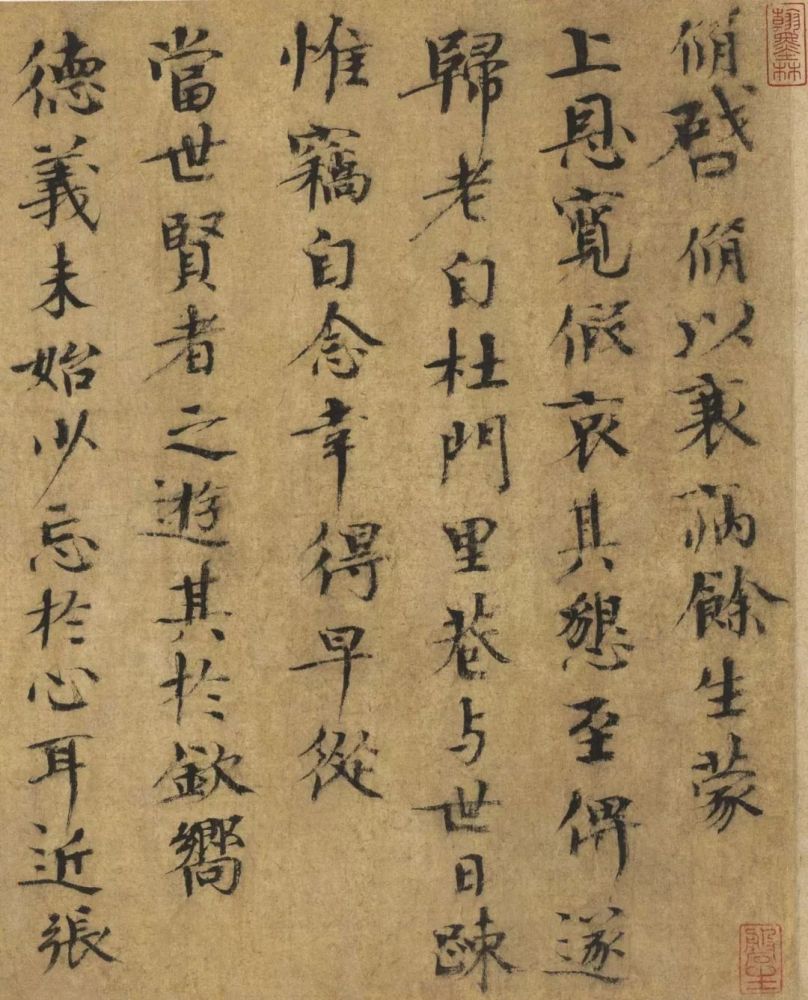 脩啓脩以衰病餘生蒙
上恩寬假哀其懇至俾遂
歸老自杜門里巷与世日踈
惟竊自念幸得早從
當世賢者之遊其於欽嚮
德義未始少忘於心耳近張
翰墨林